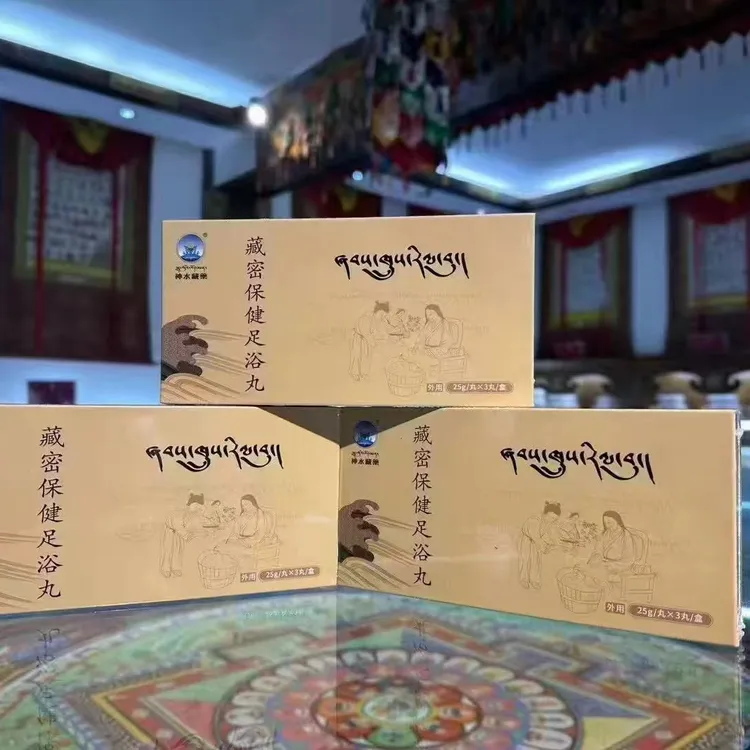 神水藏藥
藏密保健足浴丸
ཞབས་ཁྲུས་རིལ་བུ།
外用 25g/丸×3丸/盒
藏密保健足浴丸
ཞབས་ཁྲུས་རིལ་བུ།
外用 25g/丸×3丸/盒
神水藏藥
藏密保健足浴丸
ཞབས་ཁྲུས་རིལ་བུ།
外用 25g/丸×3丸/盒